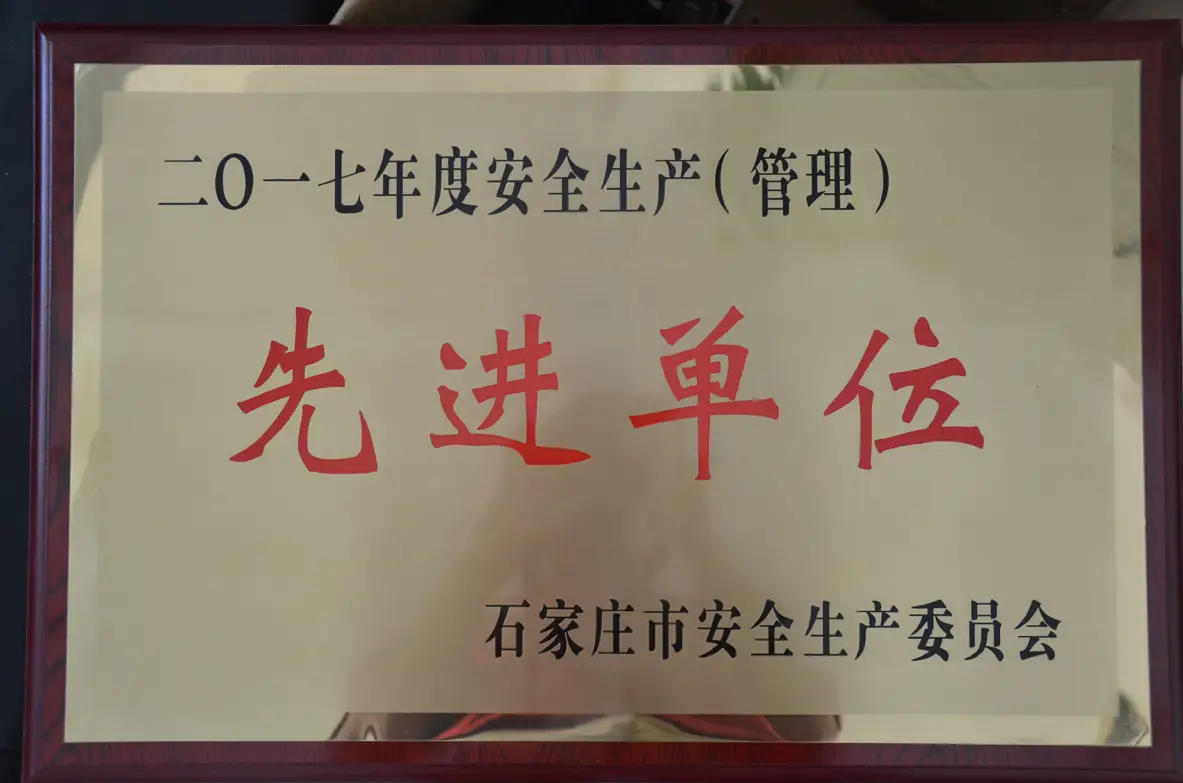 二〇一七年度安全生产(管理)
先进单位
石家庄市安全生产委员会